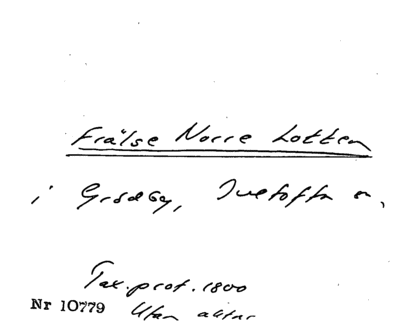 Frälse Norre Lotten
i Grödby, Tuetofta s,
Tax.prot. 1800
Nr 10779 Utan aktnr